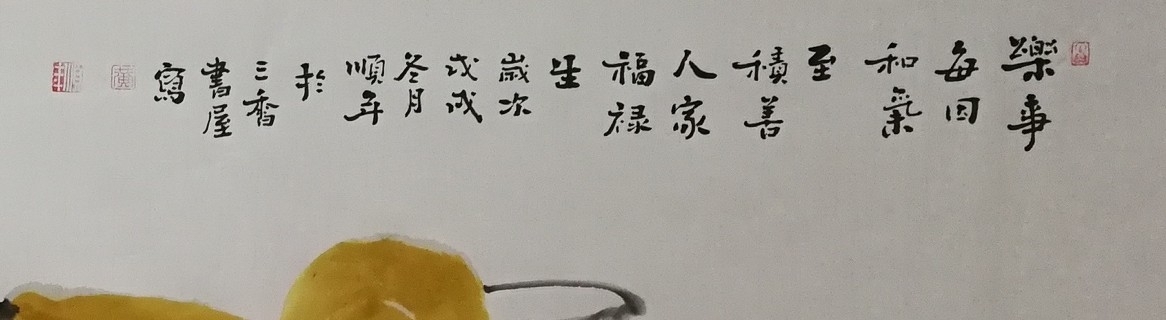 樂事
每因
和氣
至
積善
人家
福禄
生
歲次
戊戌
冬月
順年
於
三香
書屋
寫